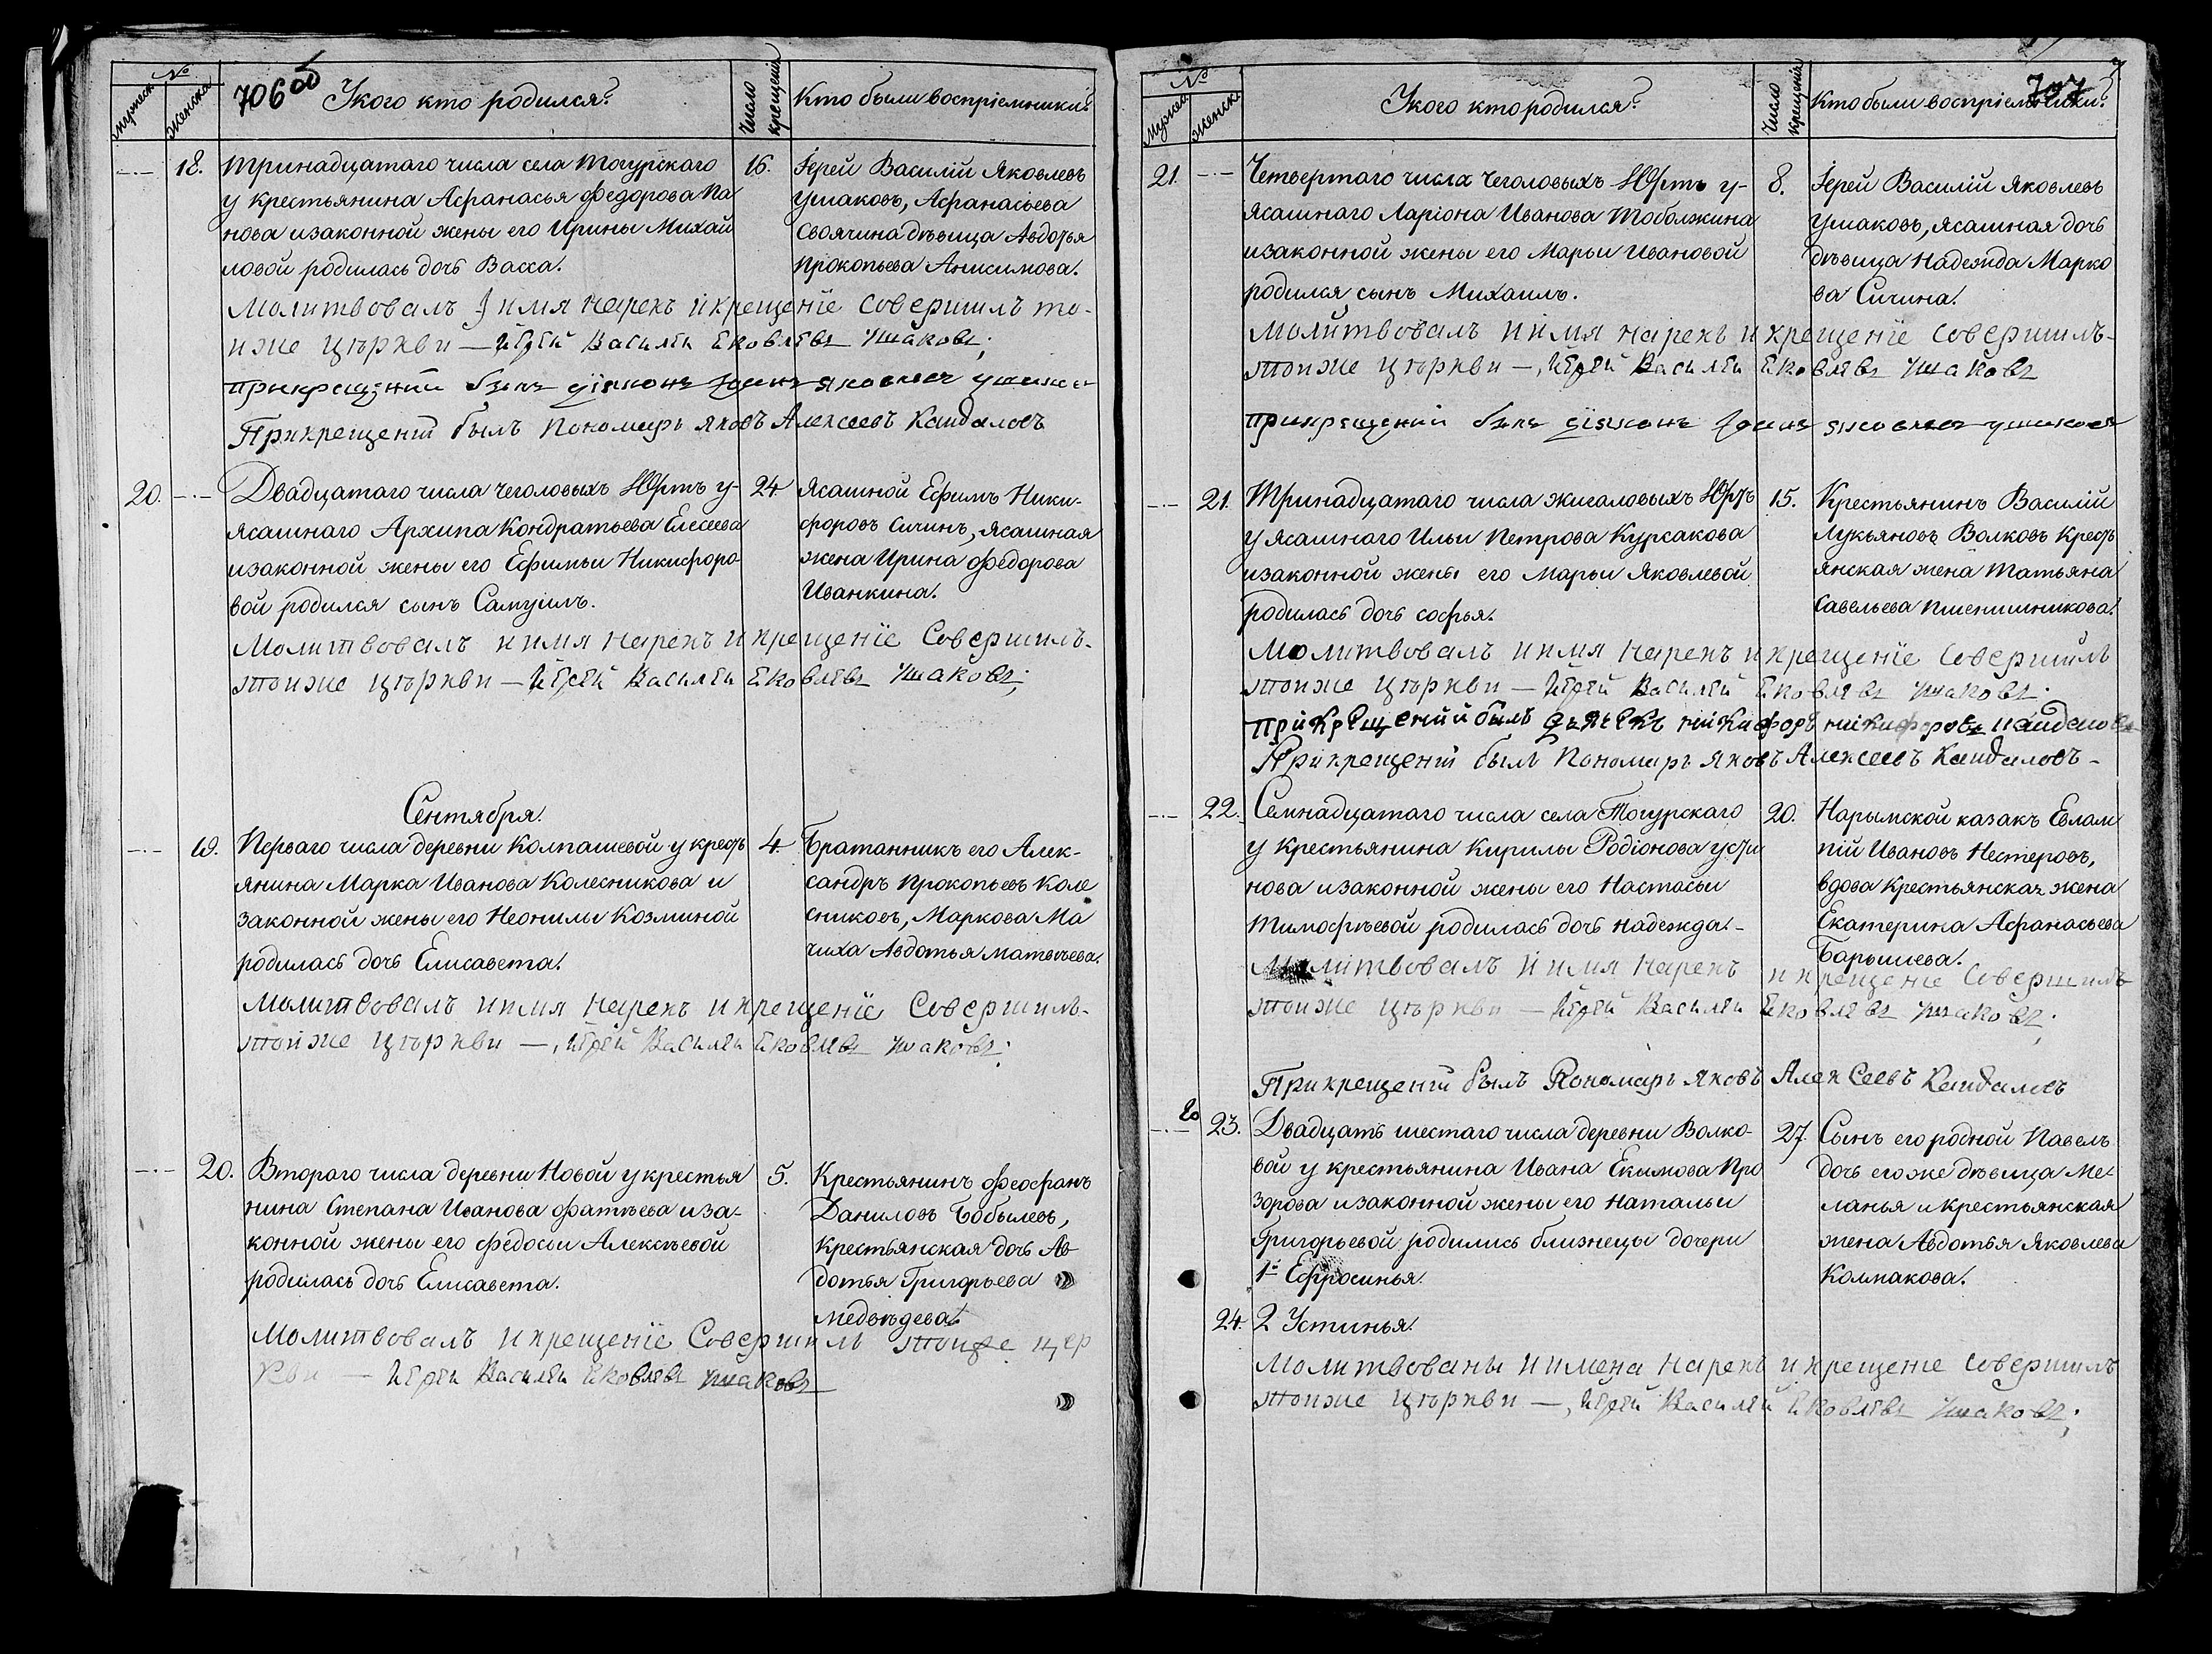 №
мужеск.
женска.
706 об
У кого кто родился?
Число крещенія
Кто были воспріемники?
18.
Тринадцатаго числа села Тогурскаго
у крестьянина Афанасья Федорова Па
нова и законной жены его Ирины Михай
ловой родилась дочь Васса.
16.
Іерей Василій Яковлевъ
Ушаковъ, Афанасьева
своячина дѣвица Авдотья
Прокопьева Анисимова.
Молитвовалъ и имя нарекъ и крещеніе совершилъ то-
иже церкви — Іерей Василей Яковлевъ Ушаковъ;
При крещеніи былъ діяконъ Іоанъ Яковлевъ Ушаковъ
При крещеніи былъ Пономарь Яковъ Алексеевъ Кайдаловъ
20.
Двадцатаго числа Чеголовыхъ Юртъ у-
ясашнаго Архипа Кондратьева Елесеева
и законной жены его Ефимьи Никифоро
вой родился сынъ Самуилъ.
24
Ясашной Ефимъ Ники-
форовъ Сичинъ, ясашная
жена Ирина Федорова
Иванкина.
Молитвовалъ и имя нарекъ и крещеніе Совершилъ-
тоиже церкви — Іерей Василей Яковлевъ Ушаковъ;
Сентября.
19.
Перваго числа деревни Колпашевой у крестъ
янина Марка Иванова Колесникова и
законной жены его Неонилы Козминой
родилась дочь Елисавета.
4.
Братанникъ его Алек-
сандръ Прокопьевъ Коле
сниковъ, Маркова Ма
чиха Авдотья Матвѣева.
Молитвовалъ и имя нарекъ и крещеніе Совершилъ-
тоиже церкви —, Іерей Василей Яковлевъ Ушаковъ;
20.
Втораго числа деревни Новой у крестья
нина Степана Иванова Фатѣева и за-
конной жены его Федосьи Алексѣевой
родилась дочь Елисавета.
5.
Крестьянинъ Феофанъ
Даниловъ Бобылевъ,
Крестьянская дочь Ав
дотья Григорьева
Медвѣдева.
Молитвовалъ и крещеніе Совершилъ тоиже цер
кви — Іерей Василей Яковлевъ Ушаковъ
№
Мужеск.
женск.
У кого кто родился?
Число крещенія
Кто были воспріемники?
707
21.
Четвертаго числа Чеголовыхъ Юртъ у-
ясашнаго Ларіона Иванова Тоболжина
и законной жены его Марьи Ивановой
родился сынъ Михаилъ.
8.
Іерей Василій Яковлевъ
Ушаковъ, ясашная дочь
дѣвица Надежда Марко
ва Сичина.
Молитвовалъ и имя нарекъ и крещеніе совершилъ-
тоиже церкви —, Іерей Василей Яковлевъ Ушаковъ
При крещеніи былъ діяконъ Іоанъ Яковлевъ Ушаковъ
21.
Тринадцатаго числа Жигаловыхъ Юртъ
у ясашнаго Ильи Петрова Курсакова
и законной жены его Марьи Яковлевой
родилась дочь Софья.
15.
Крестьянинъ Василій
Лукьяновъ Волковъ Кресть
янская жена Татьяна
Савельева Пшенишникова.
Молитвовалъ и имя нарекъ и крещеніе совершилъ
тоиже церкви — Іерей Василей Яковлевъ Ушаковъ.
При крещеніи былъ дьячекъ Никифоръ Никифоровъ Кайдаловъ
При крещеніи былъ Пономарь Яковъ Алексеевъ Кайдаловъ-
22.
Семнадцатаго числа села Тогурскаго
у Крестьянина Кирилы Родіонова Усти
нова и законной жены его Настасьи
Тимофѣевой родилась дочь Надежда.-
20.
Нарымской казакъ Евлам
пій Ивановъ Нестеровъ,
вдова Крестьянская жена
Екатерина Афанасьева
Барышева.
Молитвовалъ и имя нарекъ и крещеніе Совершилъ
тоиже церкви — Іерей Василей Яковлевъ Ушаковъ;
При крещеніи былъ Пономарь Яковъ Алексеевъ Кайдаловъ
23.
Двадцать шестаго числа деревни Волко-
вой у крестьянина Ивана Екимова Про
зорова и законной жены его Натальи
Григорьевой родились близнецы дочери
1я Ефросинья.
27.
Сынъ его родной Павелъ
дочь его же дѣвица Ме-
ланья и Крестьянская
жена Авдотья Яковлева
Колпакова.
24.
2 Устинья.
Молитвованы и имена нарекъ и крещеніе совершилъ
тоиже церкви —, Іерей Василей Яковлевъ Ушаковъ;